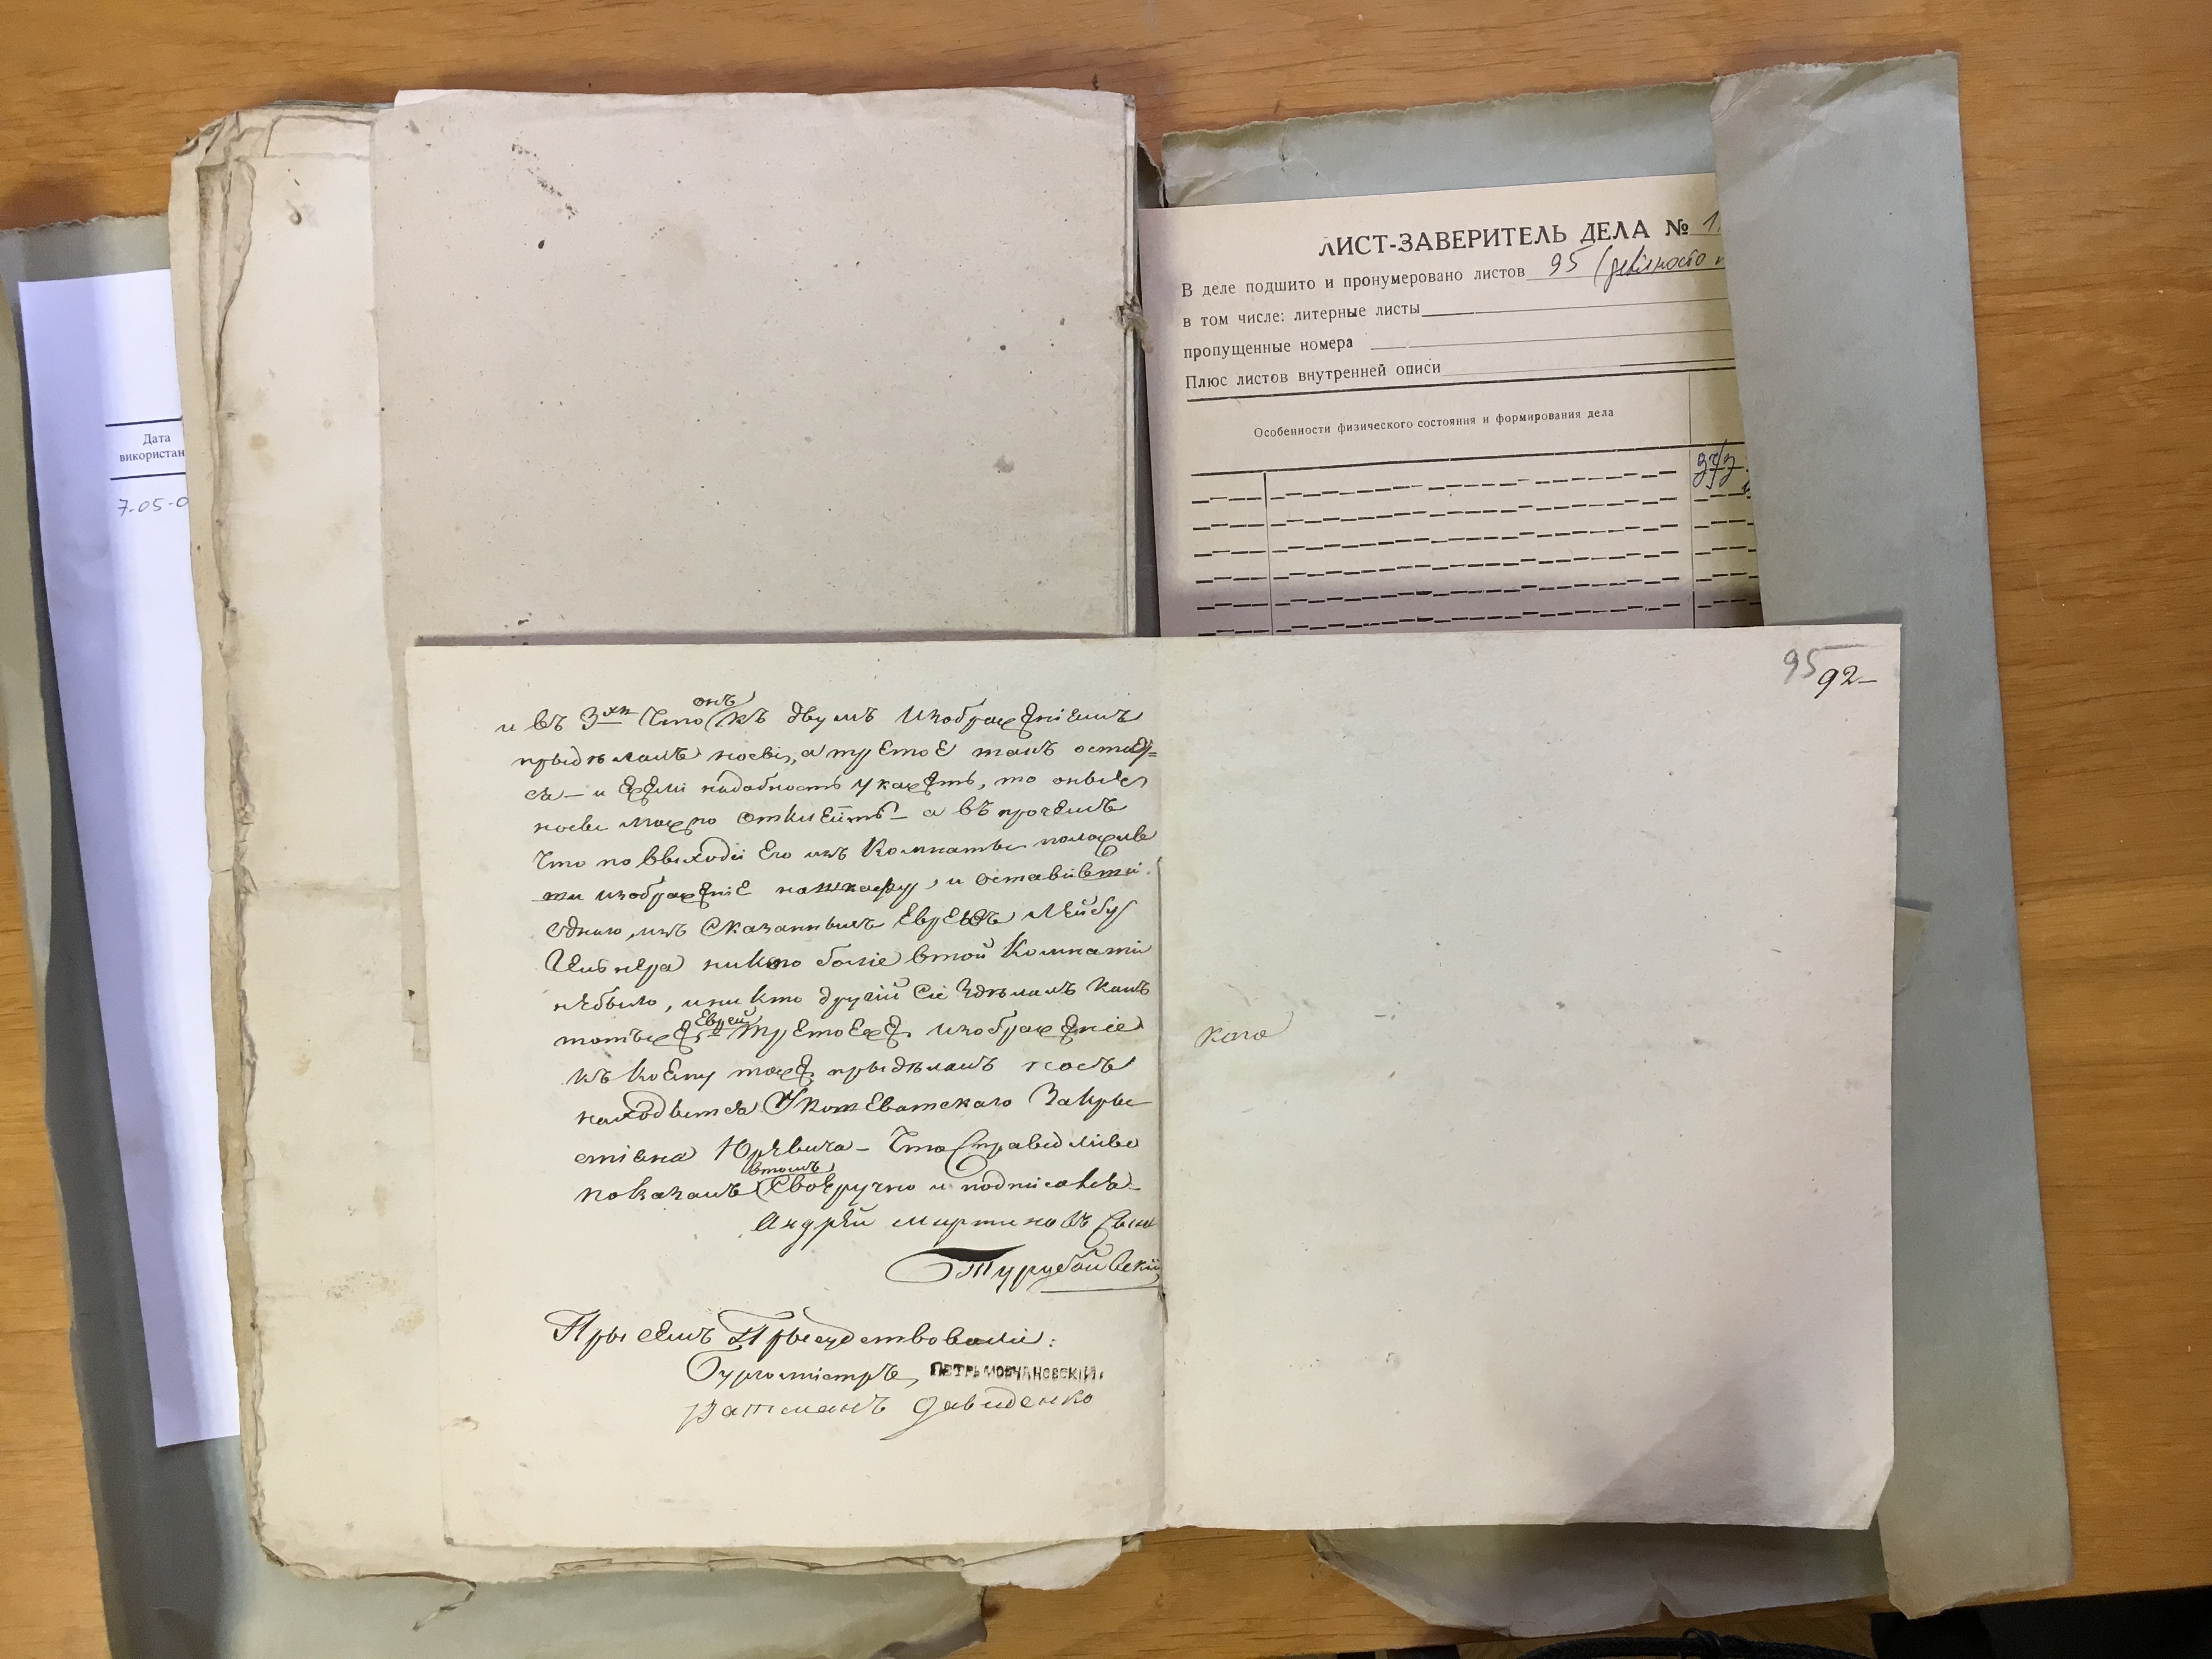 Дата
використан
7-05-0
ЛИСТ-ЗАВЕРИТЕЛЬ ДЕЛА № 1
В деле подшито и пронумеровано листов 95 (девяносто п
в том числе: литерные листы
пропущенные номера
Плюс листов внутренней описи
Особенности физического состояния и формирования дела
95 92
и въ 3хъ что онъ къ двумъ изображеніемъ
прыдѣлалъ носы, а третое такъ остаю=
ся — и ежели надобность укажетъ, то оныя
носы можно отклеить — а въ прочемъ
что по выходи его изъ комнаты положив
ти изображеніе на шкафу, и оставивши
одного, изъ сказанныхъ Евреевъ Лейбу
никто боліе втой комнати
небыло, иникто другій сіе здѣлалъ какъ
тотъже Еврей третоеже изображеніе
къ коему тоже прыдѣланъ носъ
находытся У Котеватского Закры
стіяна Юревича — что справедливо
показалъ втомъ своеручно и подписался
Андрей Мартиновъ Сынъ
Турубойвскій
кого
Пры семъ Прысудствовали:
Бургомістръ, ПЕТРЪ МОВЧАНОВСКІЙ.
Ратманъ Давиденко